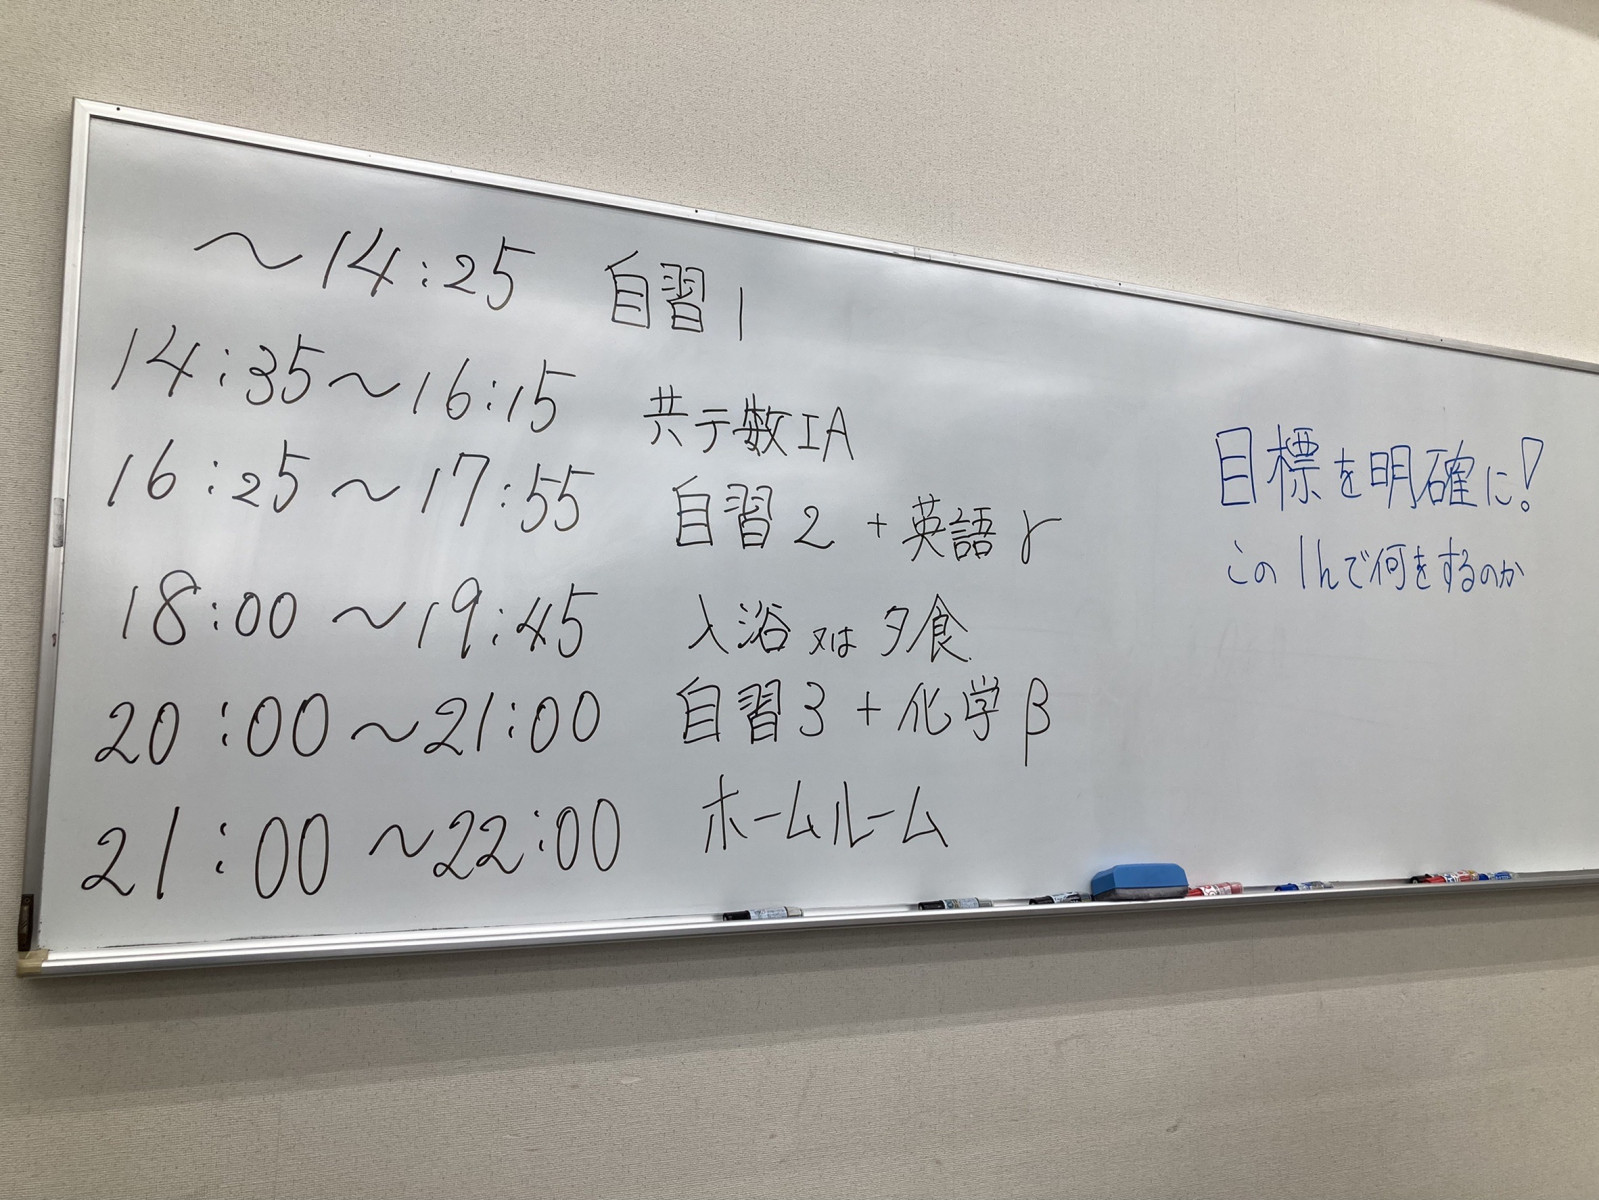 ～14:25 自習1
14:35～16:15 共テ数IA
16:25～17:55 自習2 + 英語γ
18:00～19:45 入浴又は夕食
20:00～21:00 自習3 + 化学β
21:00～22:00 ホームルーム
目標を明確に!
この1hで何をするのか